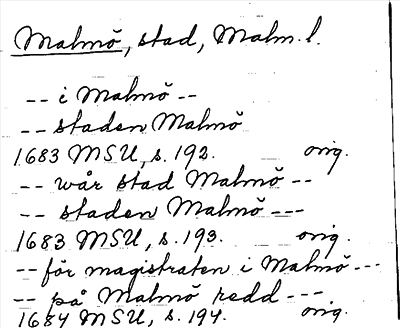 Malmö, stad, Malm. l.
-- i Malmö --
-- staden Malmö
1683 MSU, s. 192. orig.
-- wår stad Malmö --
-- staden Malmö ---
1683 MSU, s. 193. orig.
-- för magistraten i Malmö ---
-- på Malmö redd ---
1684 MSU, s. 194. orig.